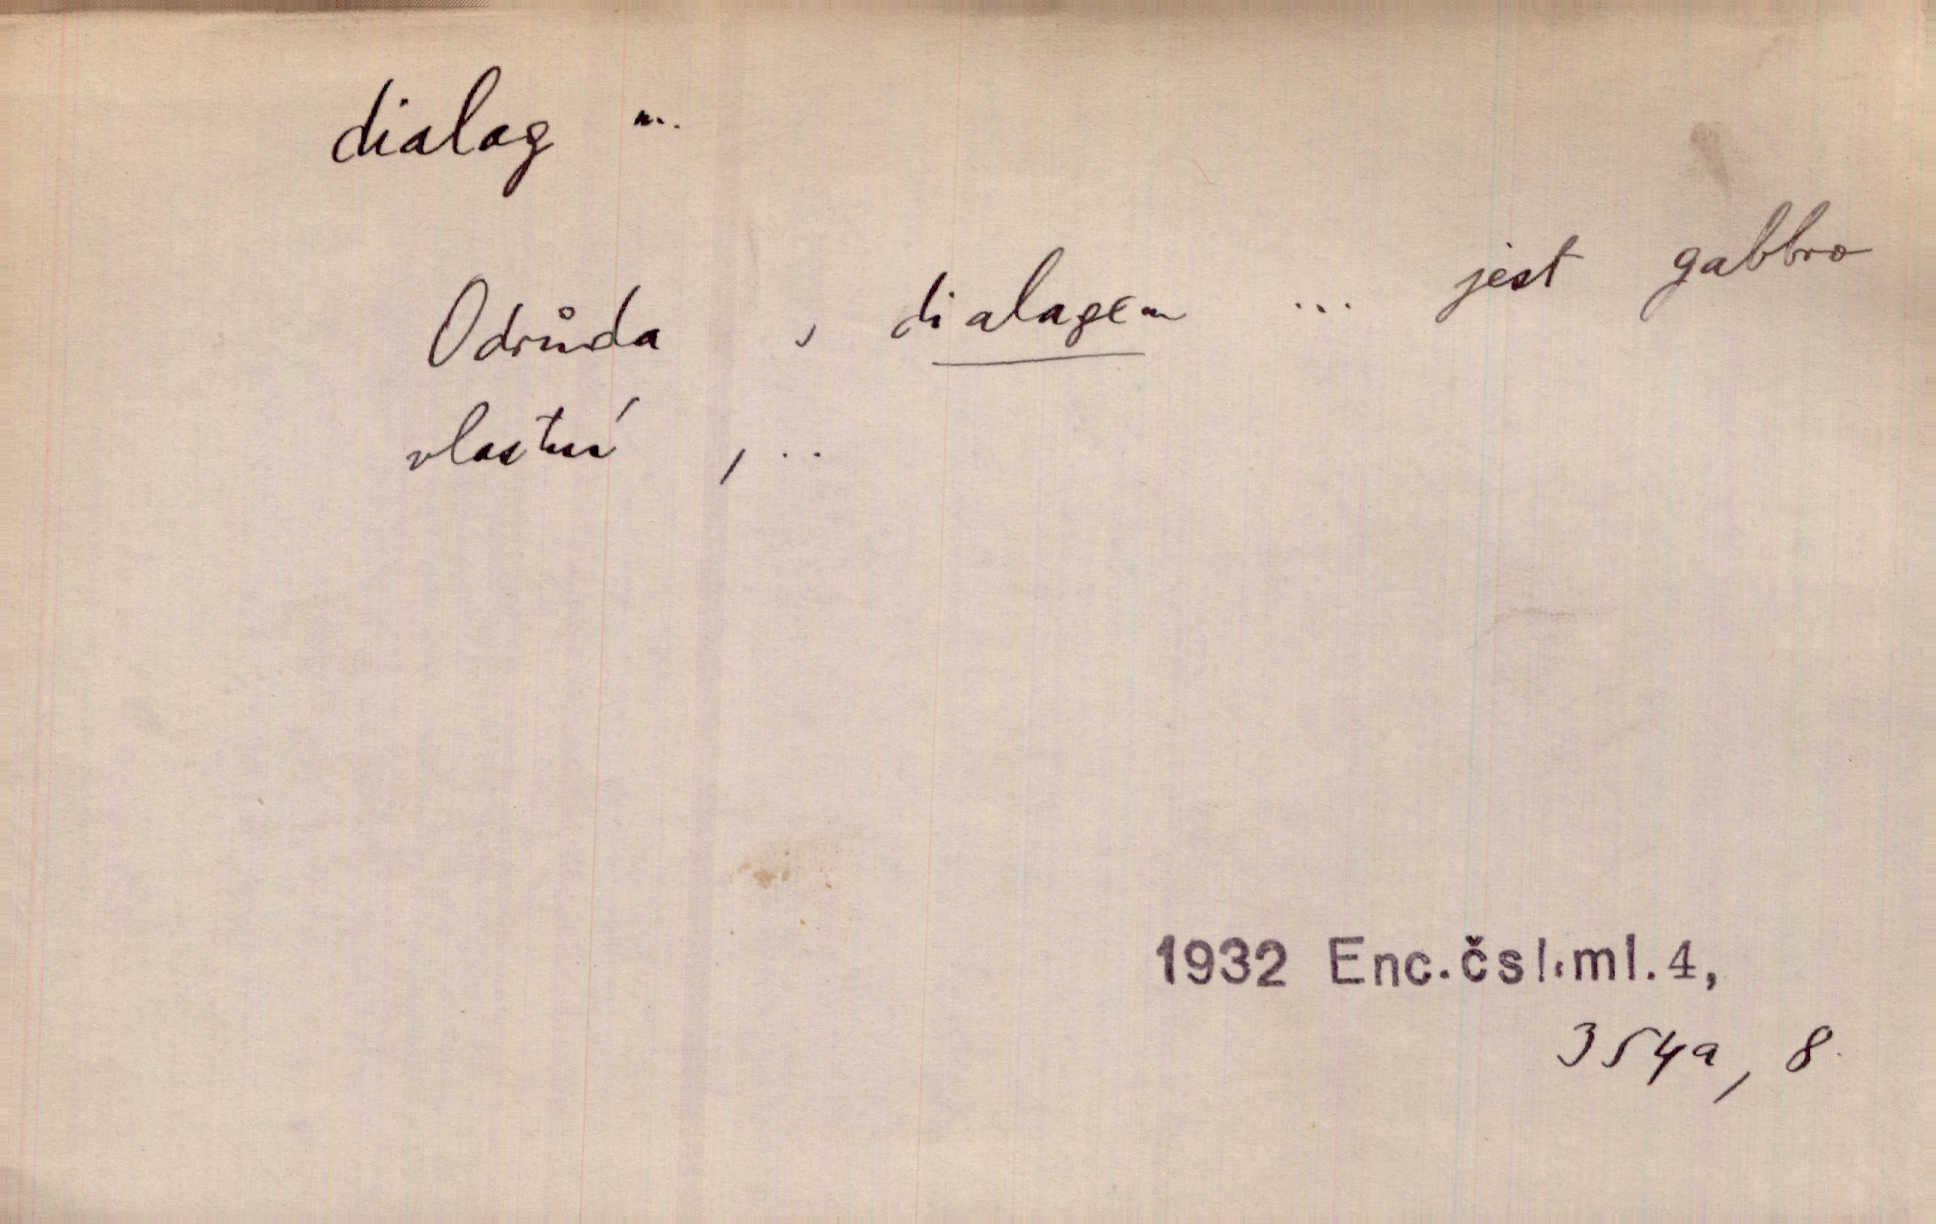 dialag m.
Odrůda s dialagem ... jest gabbro
vlastní , ..
1932 Enc.čsl.ml.4,
354a, 8.